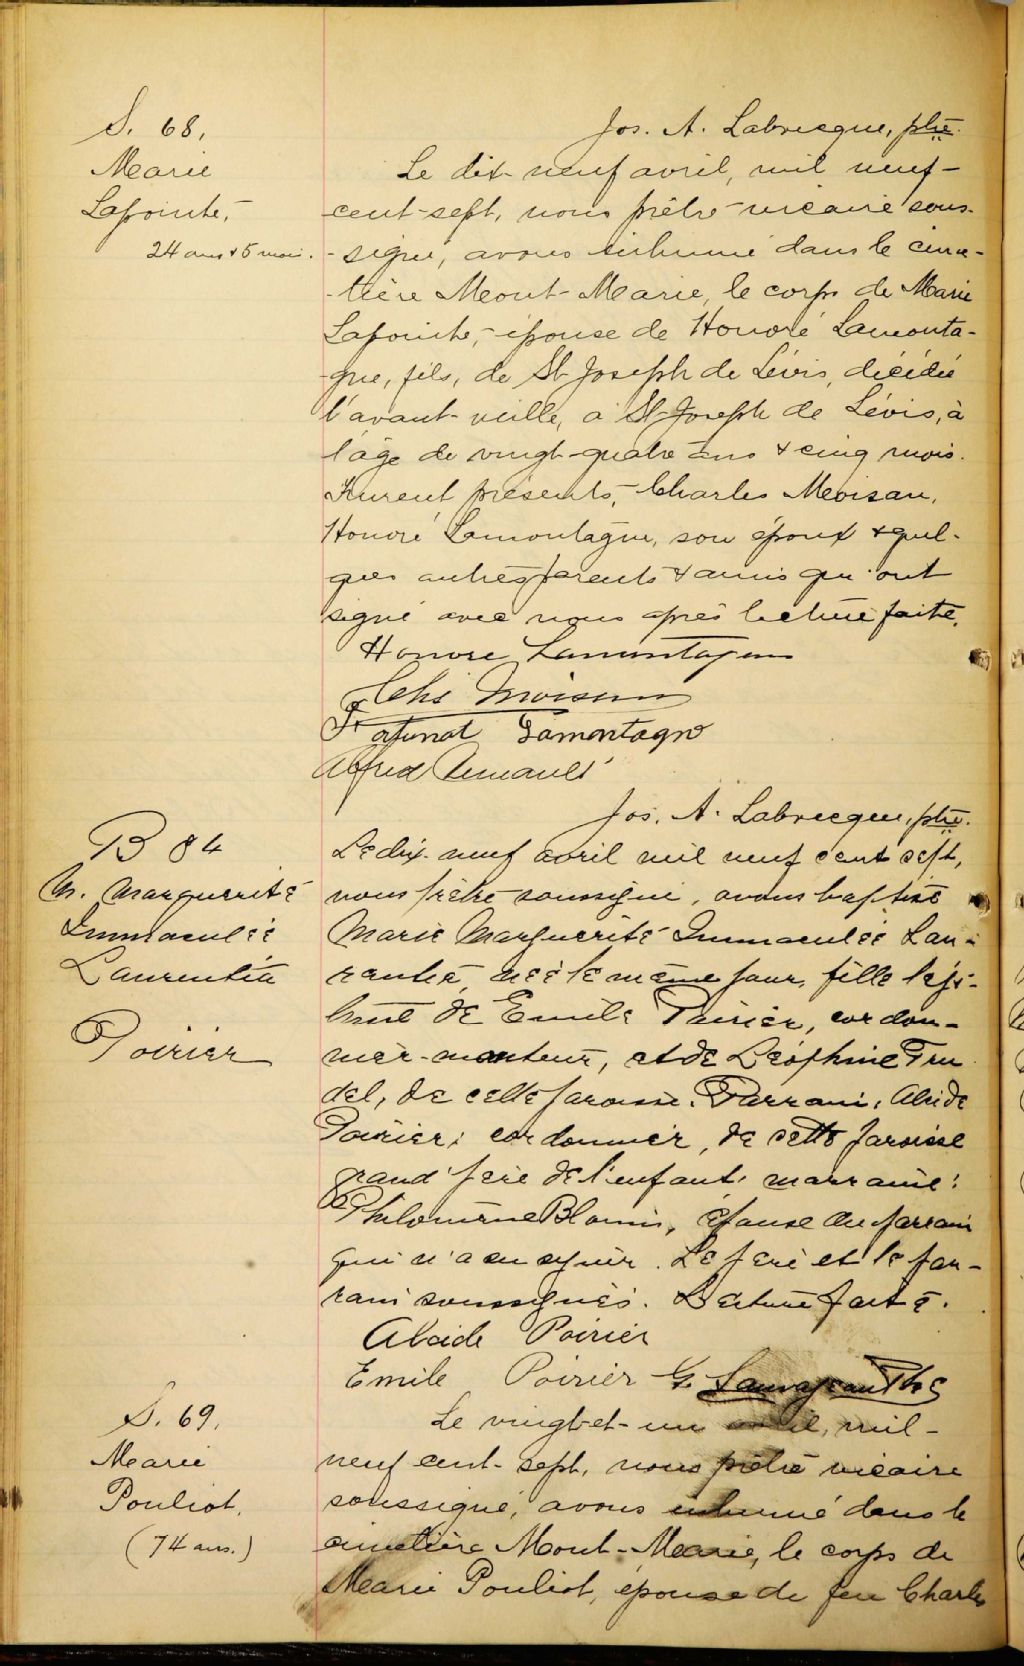 Jos. A. Labrecque, ptre.
S. 68,
Marie
Lapointe,
24 ans & 5 mois.
Le dix-neuf avril, mil neuf-
cent-sept, nous prêtre-vicaire sous-
-signé, avons inhumé dans le cime-
-tière Mont-Marie, le corps de Marie
Lapointe, épouse de Honoré Lamonta-
-gne, fils, de St Joseph de Lévis, décédée
l'avant-veille, à St Joseph de Lévis, à
l'âge de vingt-quatre ans & cinq mois.
Furent présents, Charles Moisan,
Honoré Lamontagne, son époux & quel-
ques autres parents & amis qui ont
signé avec nous après lecture faite.
Honore Lamontagne
Chs Moisan
Fortunat Lamontagne
Alfred
Jos. A. Labrecque, ptre.
B 84
M. Marguerite
Immaculée
Laurentia
Poirier
Le dix-neuf avril mil neuf cent sept,
nous prêtre soussigné, avons baptisé
Marie Marguerite Immaculée Lau-
rentia, née le même jour, fille légi-
time de Emile Poirier, cordon-
nier-monteur, et de Léophine Tru
del, de cette paroisse. Parrain, Alcide
Poirier, cordonnier, de cette paroisse
grand'père de l'enfant, marraine:
Philomène Blouin, épouse du parrain
qui n'a su signer. Le père et le par-
rain soussignés. Lecture faite.
Alcide Poirier
Emile Poirier G. Sauvageau Ptre
S. 69.
Marie
Pouliot,
(74 ans.)
Le vingt-et-un avril, mil-
neuf cent-sept, nous prêtre vicaire
soussigné, avons inhumé dans le
cimetière Mont-Marie, le corps de
Marie Pouliot, épouse de feu Charles